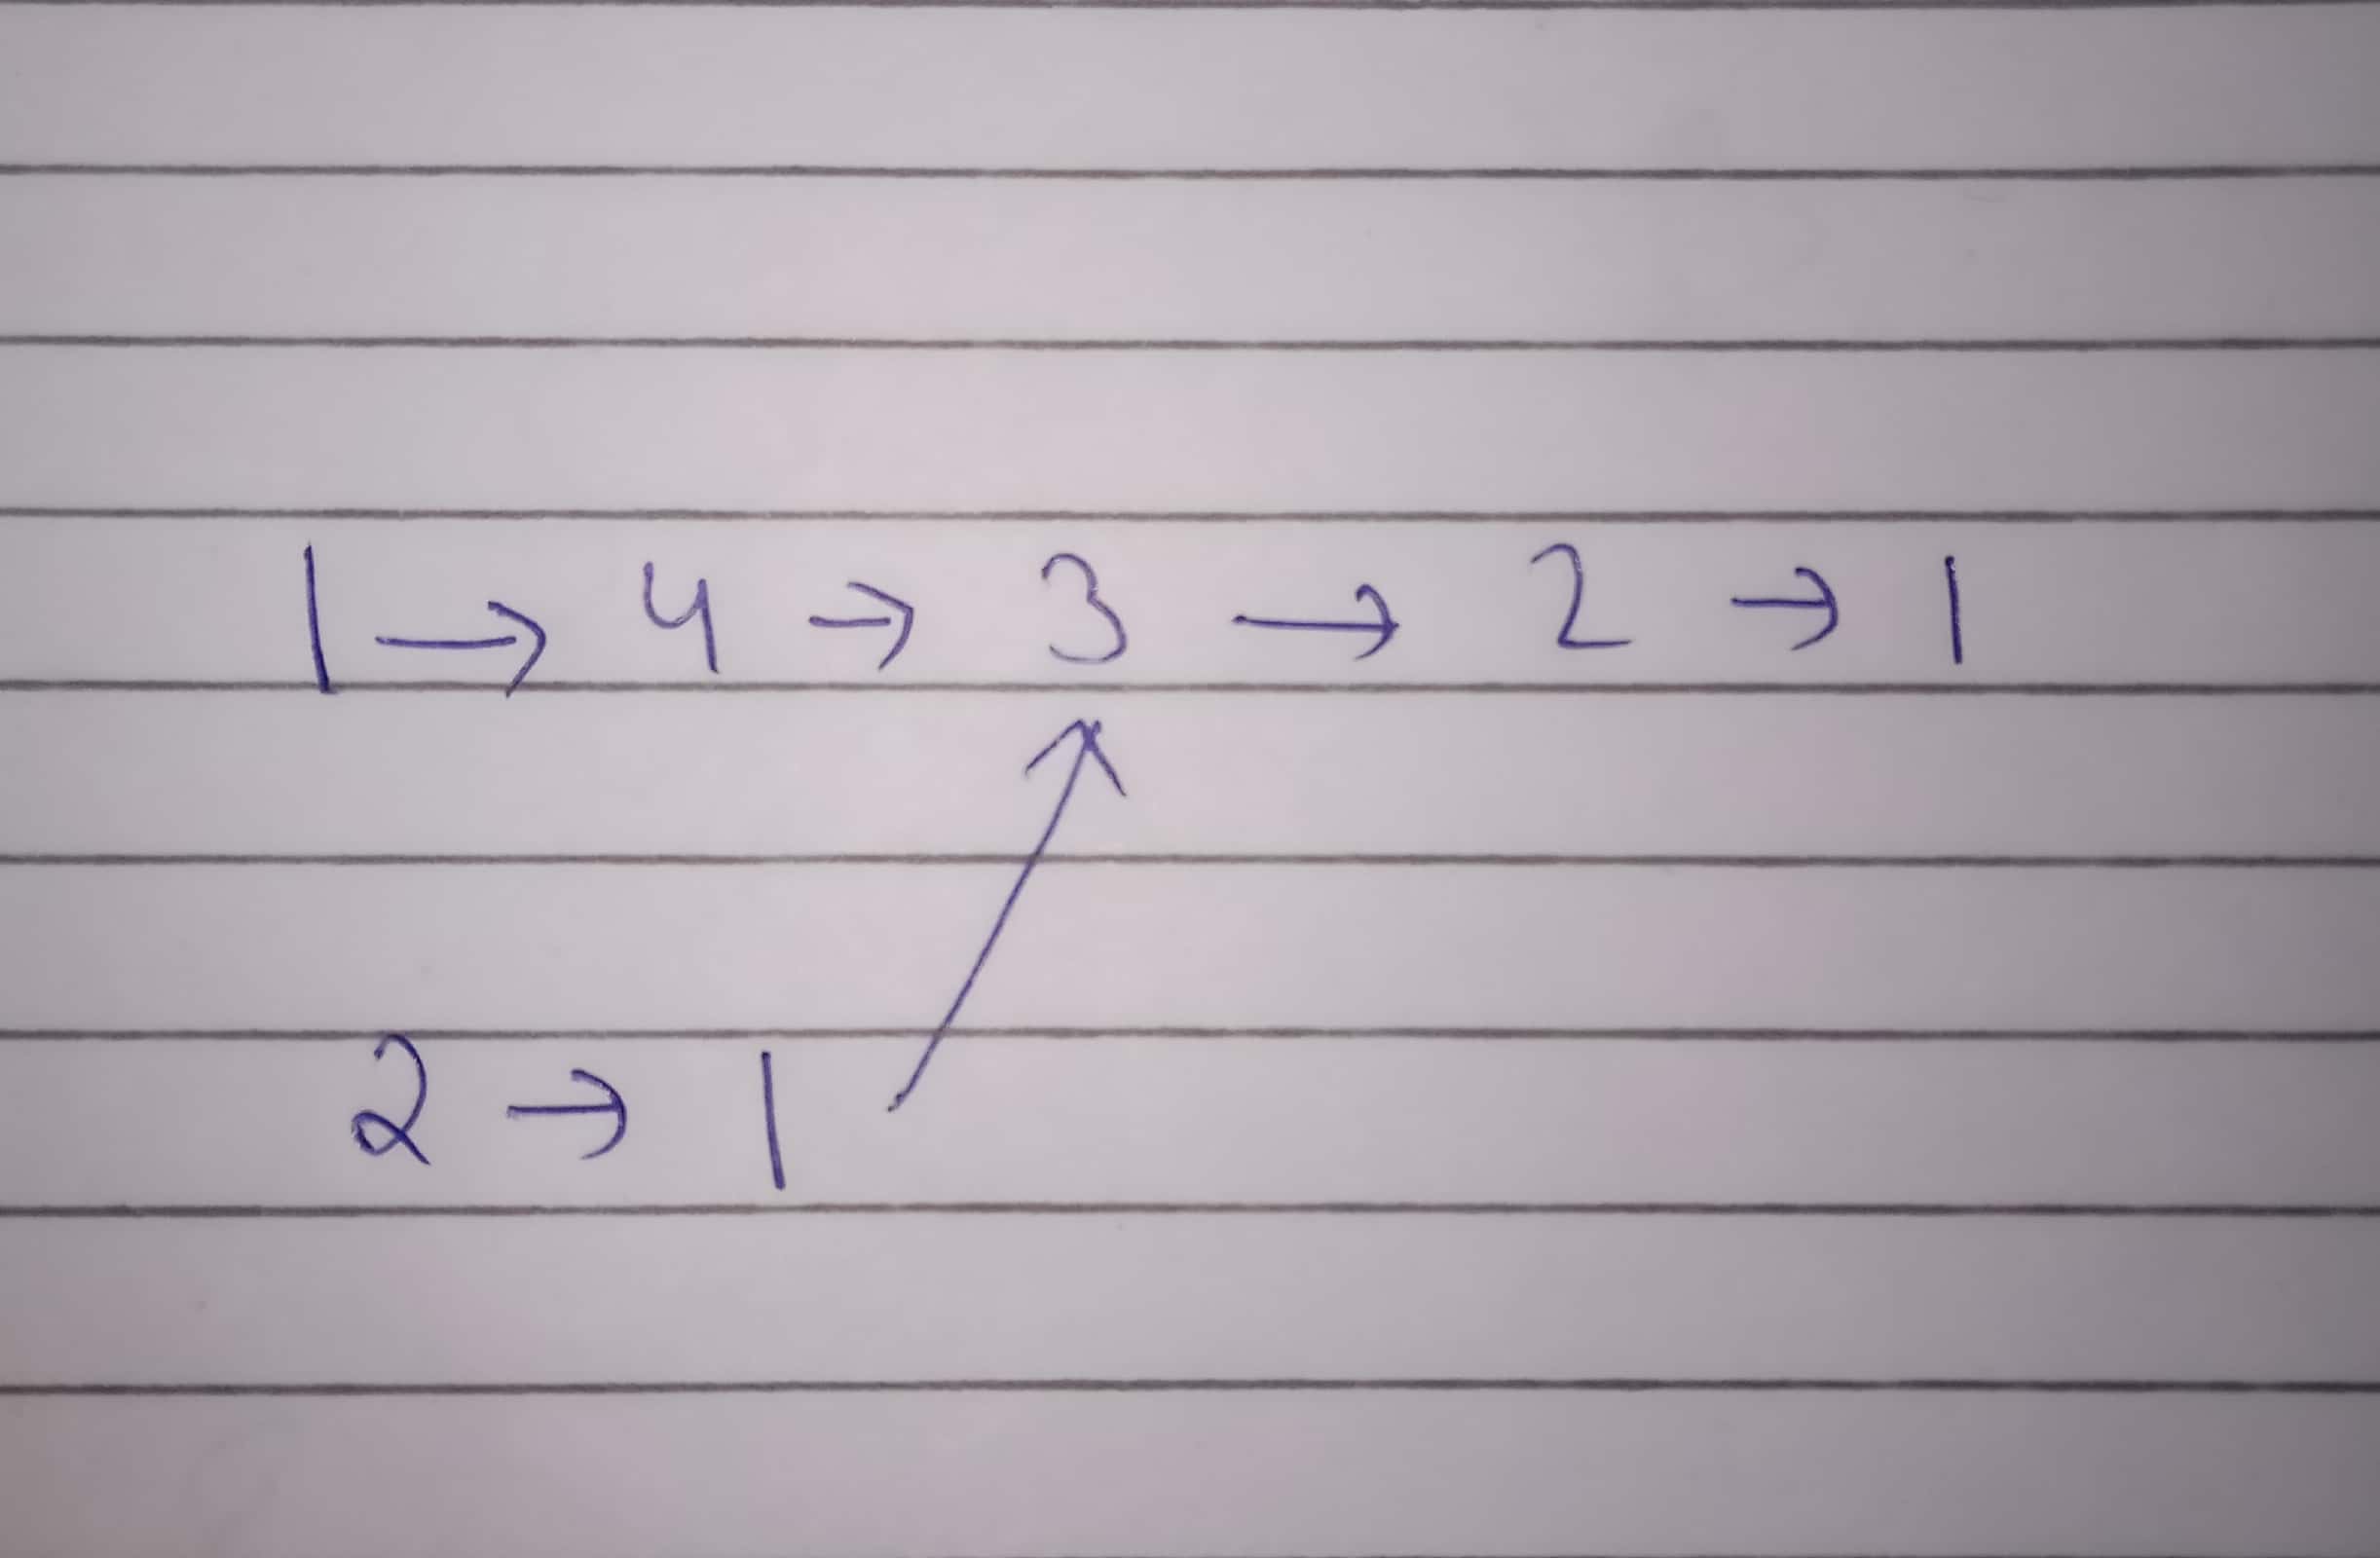 1 → 4 → 3 → 2 → 1
2 → 1